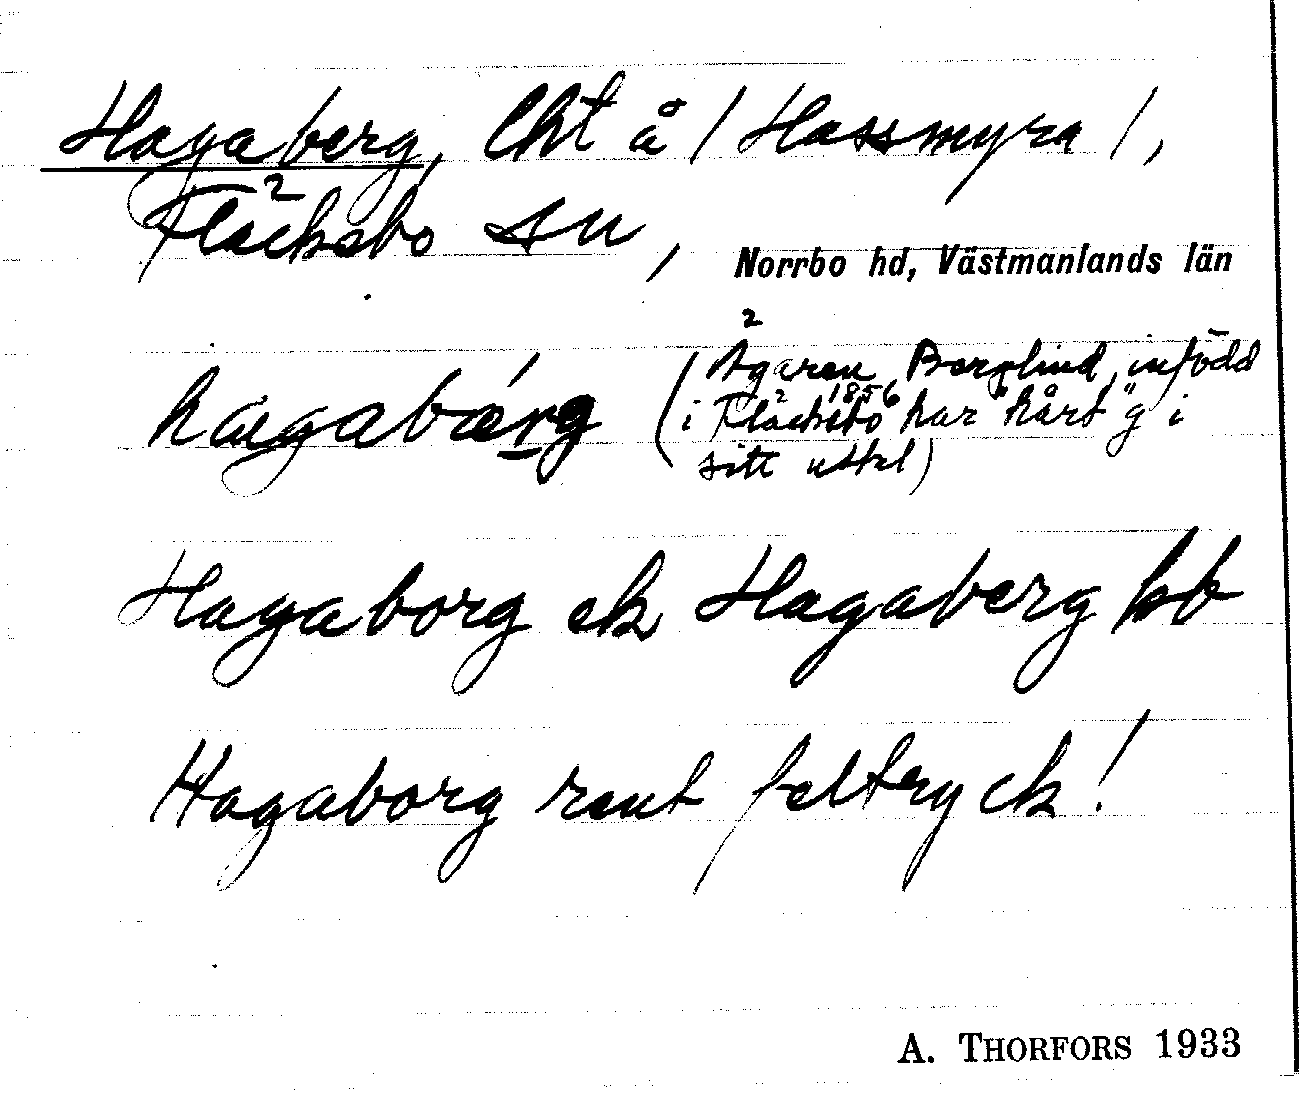 Hagaberg, lht å / Hassmyra /,
Fläcksbo sn,
Norrbo hd, Västmanlands län
hagabærg (Ägaren Berglind, infödd
i Fläcksbo 1856 har "hårt" g i
sitt uttal)
Hagaborg ek Hagaberg kb
Hagaborg rent feltryck!
A. THORFORS 1933